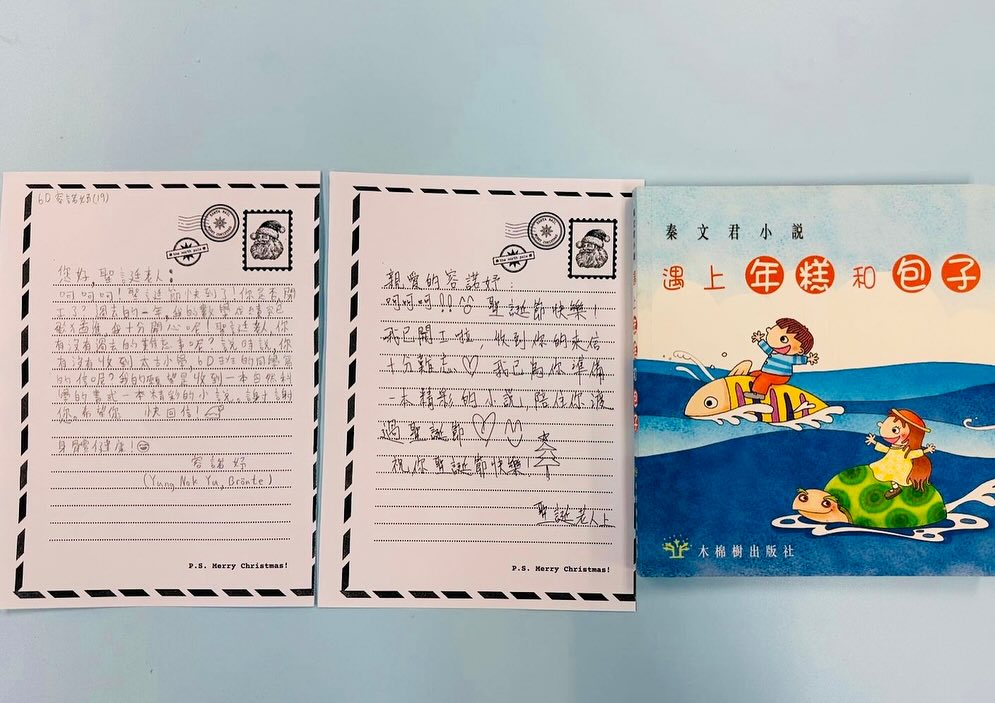 6D 容諾妤(19)
您好,聖誕老人:
呵呵呵!聖誕節快到了!你是否開
工了?過去的一年,我的數學成績
十分開心呢!聖誕老人,你
有沒有過去的 事呢?說時說,你
有沒有收到太古小學,6D班的同學寫
的信呢?我的願望是收到一本
一本精彩的小說。謝謝
你。希望你 快回信!
身體健康!
容諾妤
(Yung, Nok Yu, Brönte)
P.S. Merry Christmas!
SANTA MAIL
the north pole
親愛的容諾妤:
呵呵呵!! 聖誕節快樂!
我已開工啦,收到你的來信
十分難忘♡ 我已為你準備
一本精彩的小說,陪住你渡
過聖誕節♡
祝你聖誕節快樂!
聖誕老人上
P.S. Merry Christmas!
SANTA MAIL
the north pole
秦文君小説
遇上年糕和包子
木棉樹出版社